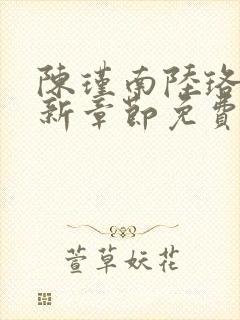 陳瑾南陸珞
新章節免費
萱草妖花